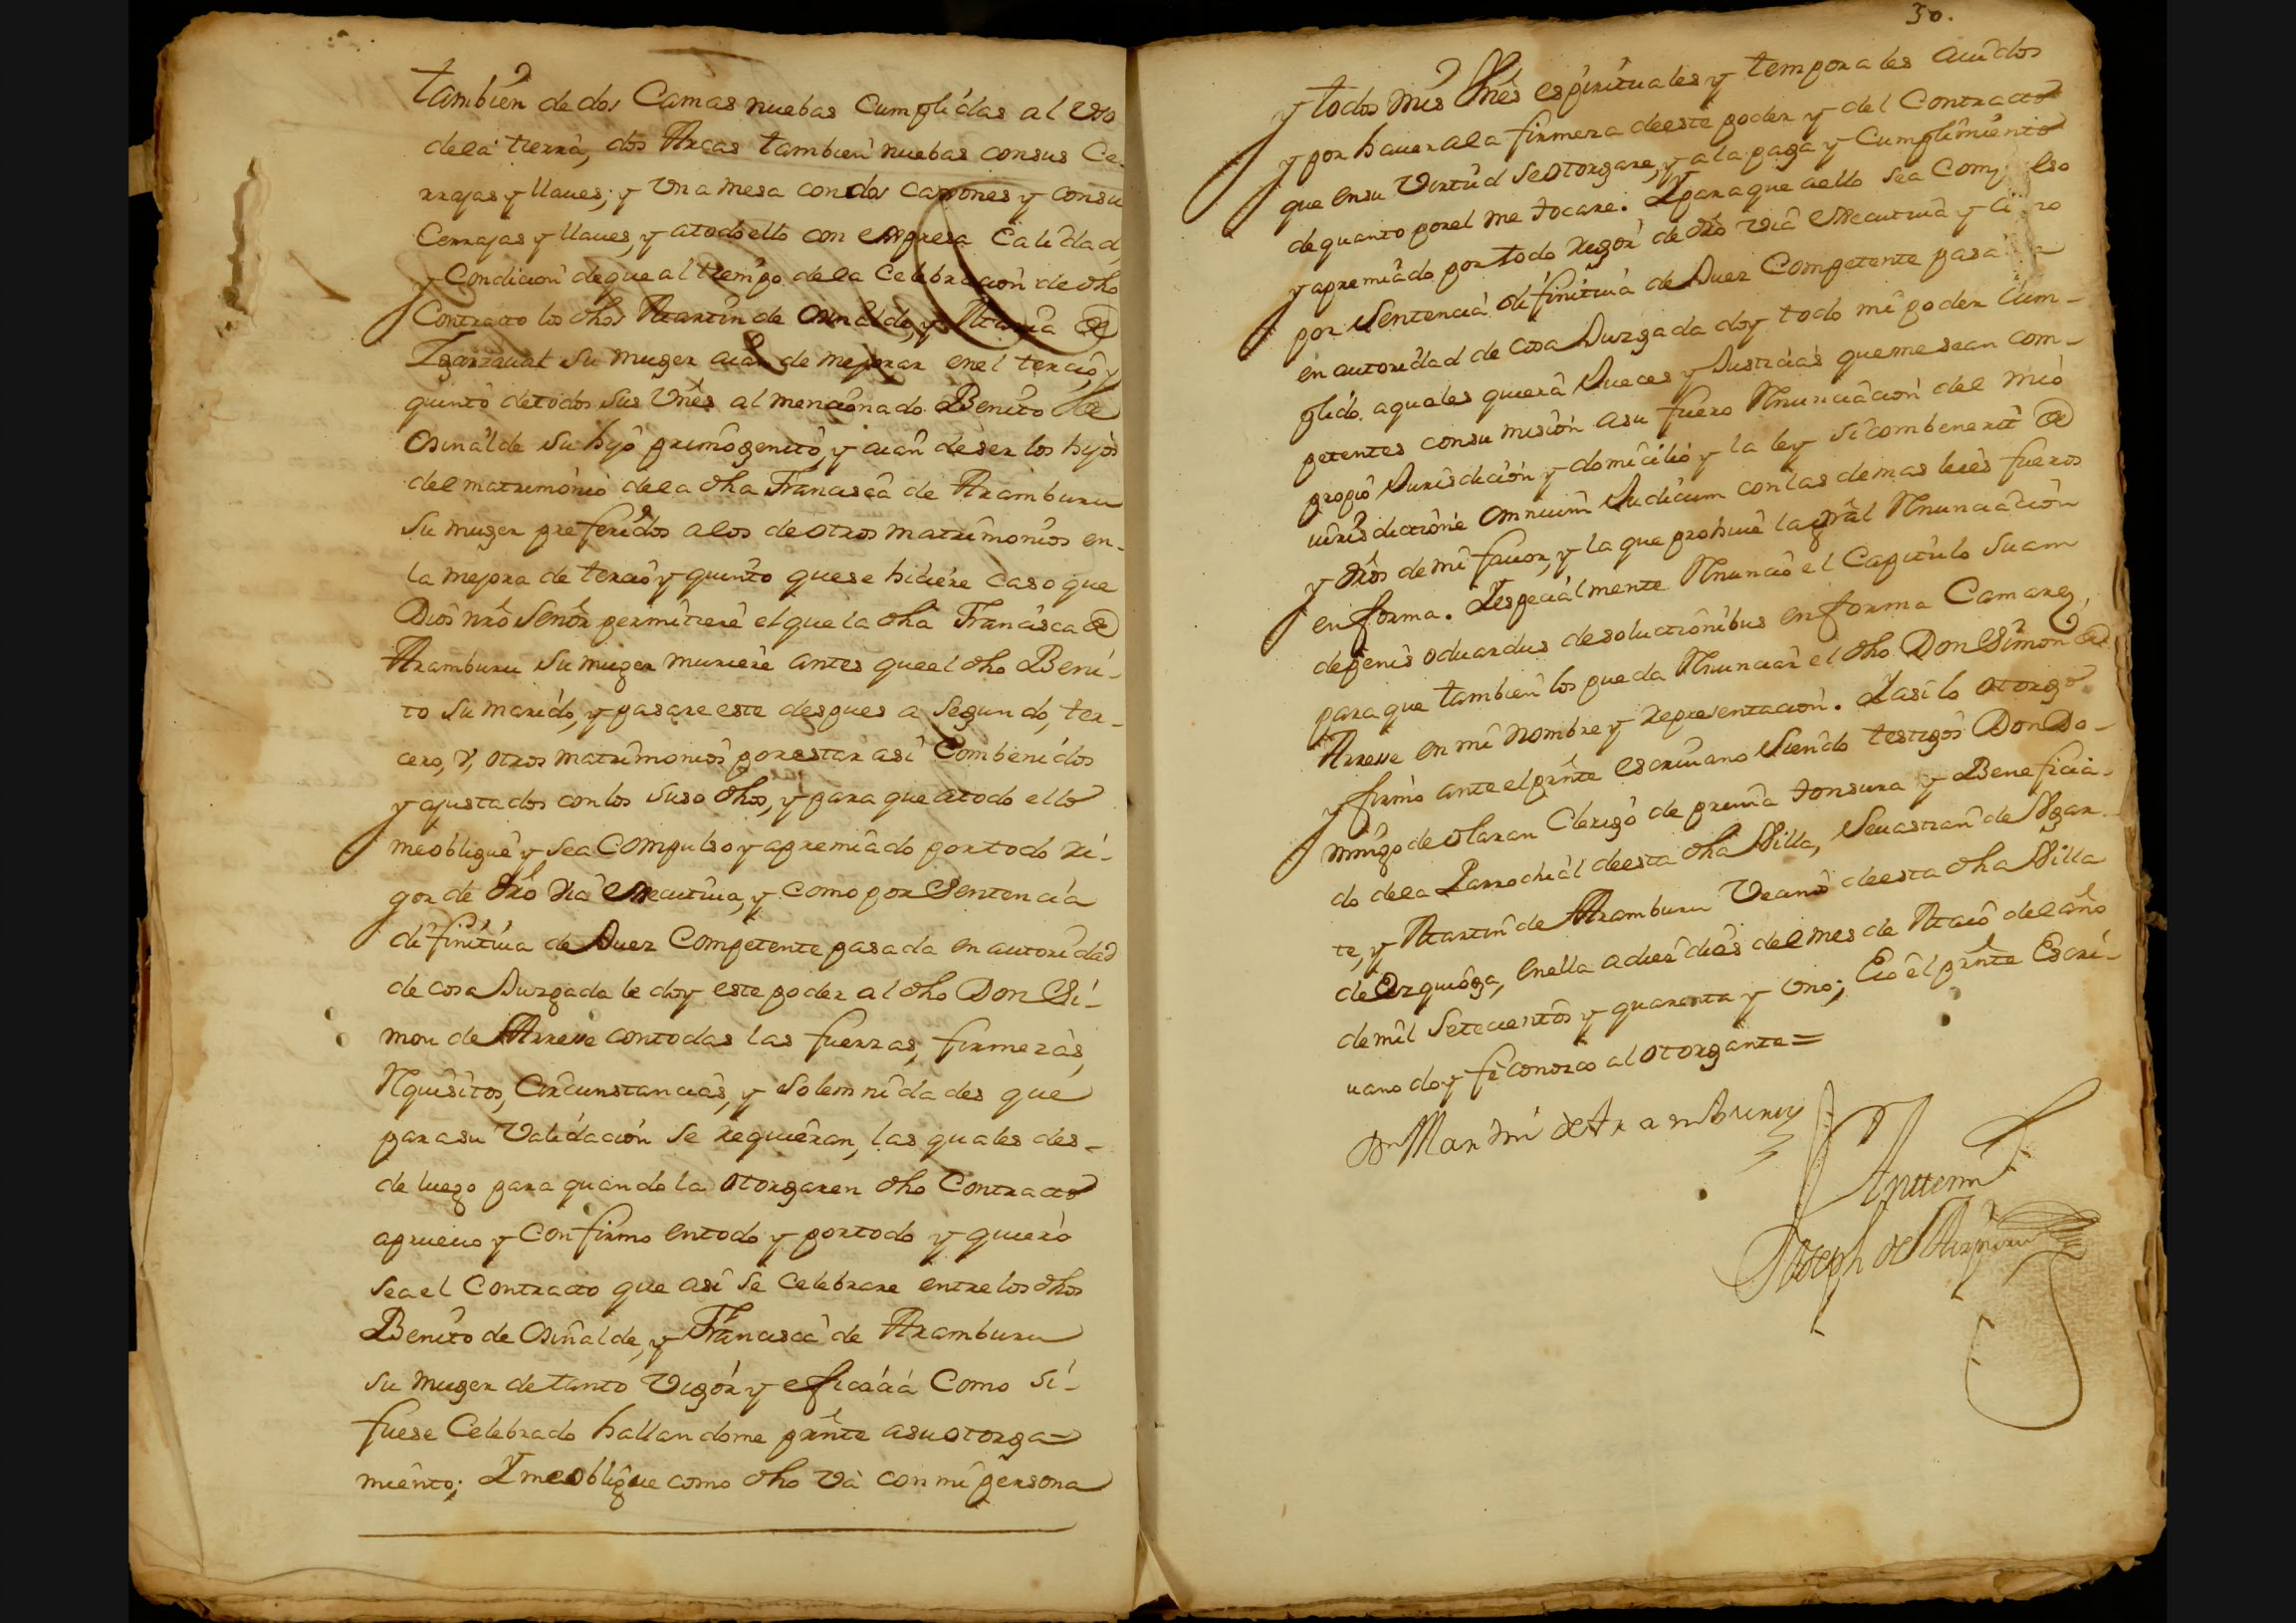 tambien de dos Camas nuebas Cumplidas al Vso
dela tierra, dos Arcas tambien nuebas consus Ce-
rrajas y llaues; y Vna mesa condos caxones y consu
Cerrajas y llaues, y atodo ello con expresa Calidad,
y Condicion deque al tiempo dela Celebracion de dho
Contracto los dhos Martin de Osinalde, y Maria de
Ygarzaual su muger aian de mejorar enel tercio y
quinto detodos sus Vnes al mencionado Benito de
Osinalde su hijo primogenito, y aian deser los hijos
del matrimonio dela dha Francisca de Aramburu
su muger preferidos alos de otros matrimonios en-
la mejora de tercio y quinto quese hiciere caso que
Dios nro Senor permitiere el que la dha Francisca de
Aramburu su muger muriere antes que el dho Beni-
to su marido, y pasare este despues a segundo, ter-
cero, y, otros matrimonios porestar asi Combenidos
y ajustados conlos suso dhos, y para que atodo ello
meobligue y sea Compulso y apremiado portodo ri-
gor de dro via executiua, y como por Sentencia
difinitiua de Juez Competente pasada en autoridad
de cosa Juzgada le doy este poder al dho Don Si-
mon de Arrese contodas las fuerzas, firmezas,
Requisitos, Circunstancias, y solemnidades que
para su Validacion se requieran, las quales des-
de luego para quando la otorgaren dho Contracto
aprueuo y confirmo entodo y portodo y quiero
sea el Contracto que asi se celebrare entre los dhos
Benito de Osinalde, y Francisca de Aramburu
su muger detanto Vigor y eficacia Como si-
fuese Celebrado hallandome prnte asu otorga=
miento; Y meobligue como dho Va con mi persona
30.
y todos mis Vnes espirituales y temporales auidos
y por hauer ala firmeza deeste poder y del Contracto
que ensu Virtud se otorgare, y ala paga y Cumplimiento
dequanto porel me tocare. Y paraque aello sea Comp lso
y apremiado por todo rigor de dro via executiua y
por Sentencia difinitiua de Juez Competente pasa
en autoridad de cosa Juzgada doy todo mi poder Cum-
plido aquales quiera Jueces y Justicias queme sean com-
petentes consu mision asu fuero Renunciacion del mio
propio Jurisdicion y domicilio y la ley si combenerit de
iurisdictione omnium Judicum conlas demas leies fueros
y dros de mi fauor, y la que prohiue la gral Renunciacion
en forma. Y especialmente Renuncio el Capitulo suam
depenis oduardus desolutionibus enforma Camare,
paraque tambien los pueda Renunciar el dho Don Simon de
Arrese en mi nombre y representacion. Y asi lo otorgo
y firmo ante el prnte escriuano siendo testigos Don Do-
mingo de olaran Clerigo de prima tonsura y Beneficia-
do dela Parrochial deesta dha Villa, Seuastian de Ugar-
te, y Martin de Aramburu Vecinos deesta dha Villa
de Ezquioga, enella adiez dias del mes de Maio del año
de mil Setecientos y quarenta y Vno; E io el prnte Escri-
uano doy fe conozco al otorgante=
Dn Martin de Aramburu
Anttemi
Joseph de